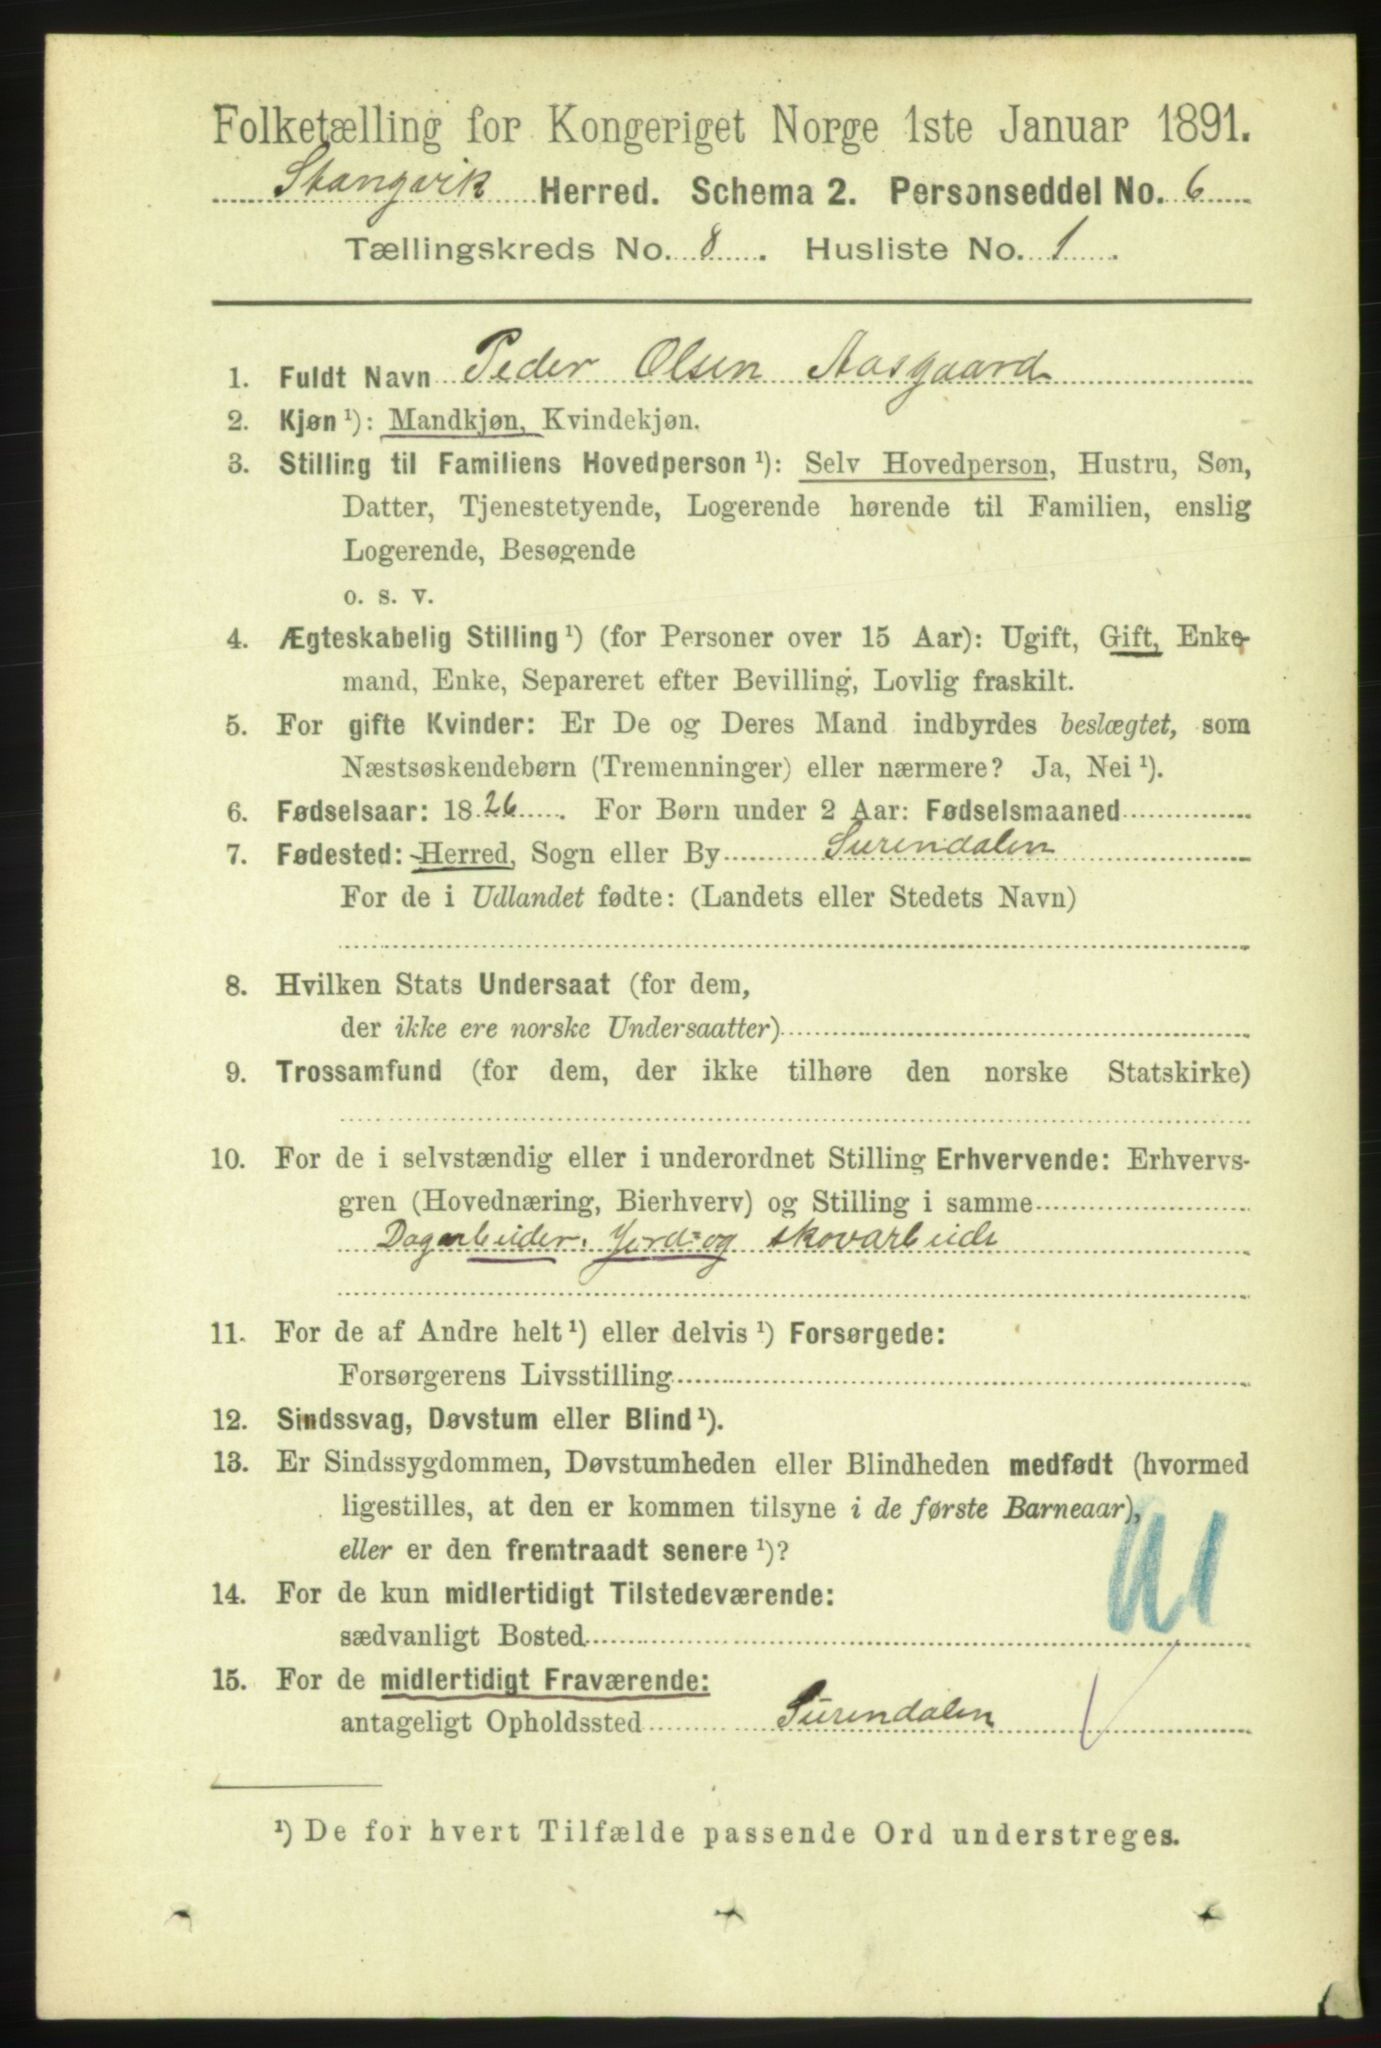 Folketælling for Kongeriget Norge 1ste Januar 1891.
Stangvik Herred. Schema 2. Personseddel No. 6
Tællingskreds No. 8. Husliste No. 1.
1. Fuldt Navn Peder Olsen Aasgaard
2. Kjøn ¹): Mandkjøn, Kvindekjøn.
3. Stilling til Familiens Hovedperson ¹): Selv Hovedperson, Hustru, Søn,
Datter, Tjenestetyende, Logerende hørende til Familien, enslig
Logerende, Besøgende
o. s. v.
4. Ægteskabelig Stilling ¹) (for Personer over 15 Aar): Ugift, Gift, Enke-
mand, Enke, Separeret efter Bevilling, Lovlig fraskilt.
5. For gifte Kvinder: Er De og Deres Mand indbyrdes beslægtet, som
Næstsøskendebørn (Tremenninger) eller nærmere? Ja, Nei ¹).
6. Fødselsaar: 1826. For Børn under 2 Aar: Fødselsmaaned
7. Fødested: Herred, Sogn eller By Surendalen
For de i Udlandet fødte: (Landets eller Stedets Navn)
8. Hvilken Stats Undersaat (for dem,
der ikke ere norske Undersaatter)
9. Trossamfund (for dem, der ikke tilhøre den norske Statskirke)
10. For de i selvstændig eller i underordnet Stilling Erhvervende: Erhvervs-
gren (Hovednæring, Bierhverv) og Stilling i samme
Dagarbeider. Jord- og skovarbeide
11. For de af Andre helt ¹) eller delvis ¹) Forsørgede:
Forsørgerens Livsstilling
12. Sindssvag, Døvstum eller Blind ¹).
13. Er Sindssygdommen, Døvstumheden eller Blindheden medfødt (hvormed
ligestilles, at den er kommen tilsyne i de første Barneaar),
eller er den fremtraadt senere ¹)?
14. For de kun midlertidigt Tilstedeværende:
sædvanligt Bosted
15. For de midlertidigt Fraværende:
antageligt Opholdssted Surendalen
¹) De for hvert Tilfælde passende Ord understreges.